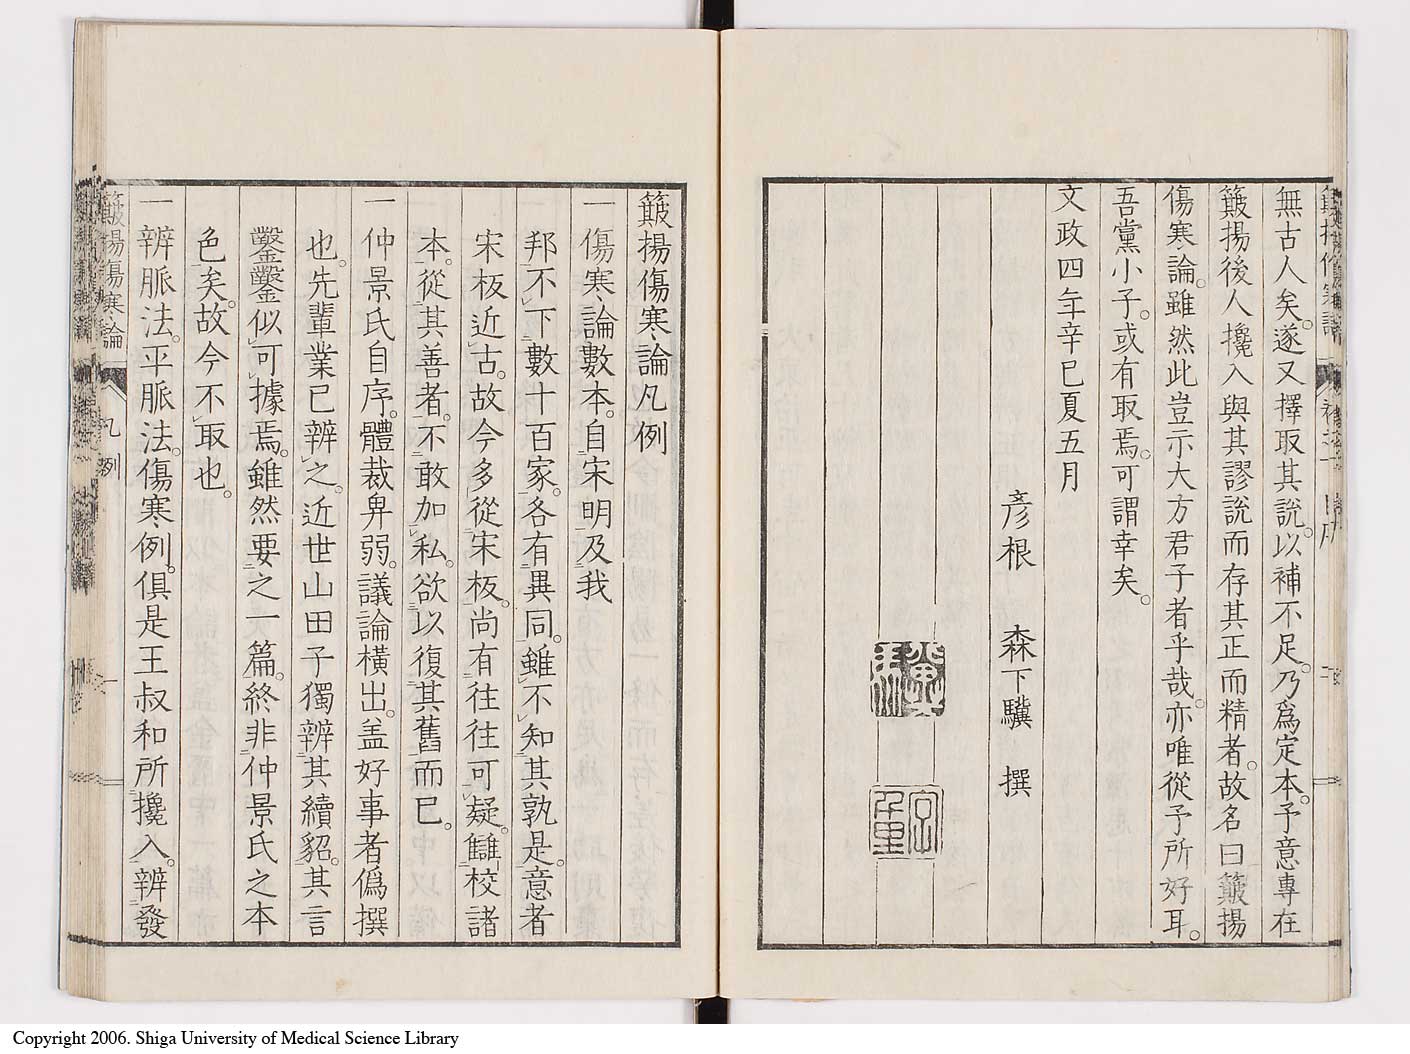 無古人矣。遂又擇取其說。以補不足。乃爲定本。予意專在
簸揚後人攙入與其謬說而存其正而精者。故名曰簸揚
傷寒論。雖然此豈示大方君子者乎哉。亦唯從予所好耳。
吾黨小子。或有取焉。可謂幸矣。
文政四年辛巳夏五月
彦根 森下驥 撰
簸揚傷寒論凡例
一傷寒論數本。自宋明及我
邦不下數十百家。各有異同。雖不知其孰是。意者
宋板近古。故今多從宋板。尚有往往可疑。讎校諸
本。從其善者。不敢加私。欲以復其舊而已。
一仲景氏自序。體裁卑弱。議論橫出。盖好事者僞撰
也。先輩業已辨之。近世山田子獨辨其續貂。其言
鑿鑿似可據焉。雖然要之一篇。終非仲景氏之本
色矣。故今不取也。
一辨脈法。平脈法。傷寒例。俱是王叔和所攙入。辨發
簸揚傷寒論 凡例
Copyright 2006. Shiga University of Medical Science Library